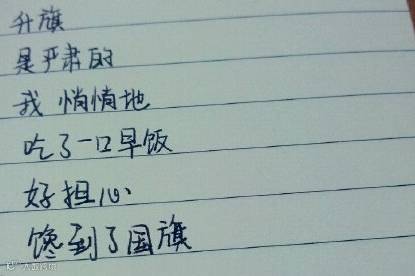 升旗
是严肃的
我 悄悄地
吃了一口早饭
好担心
馋到了国旗